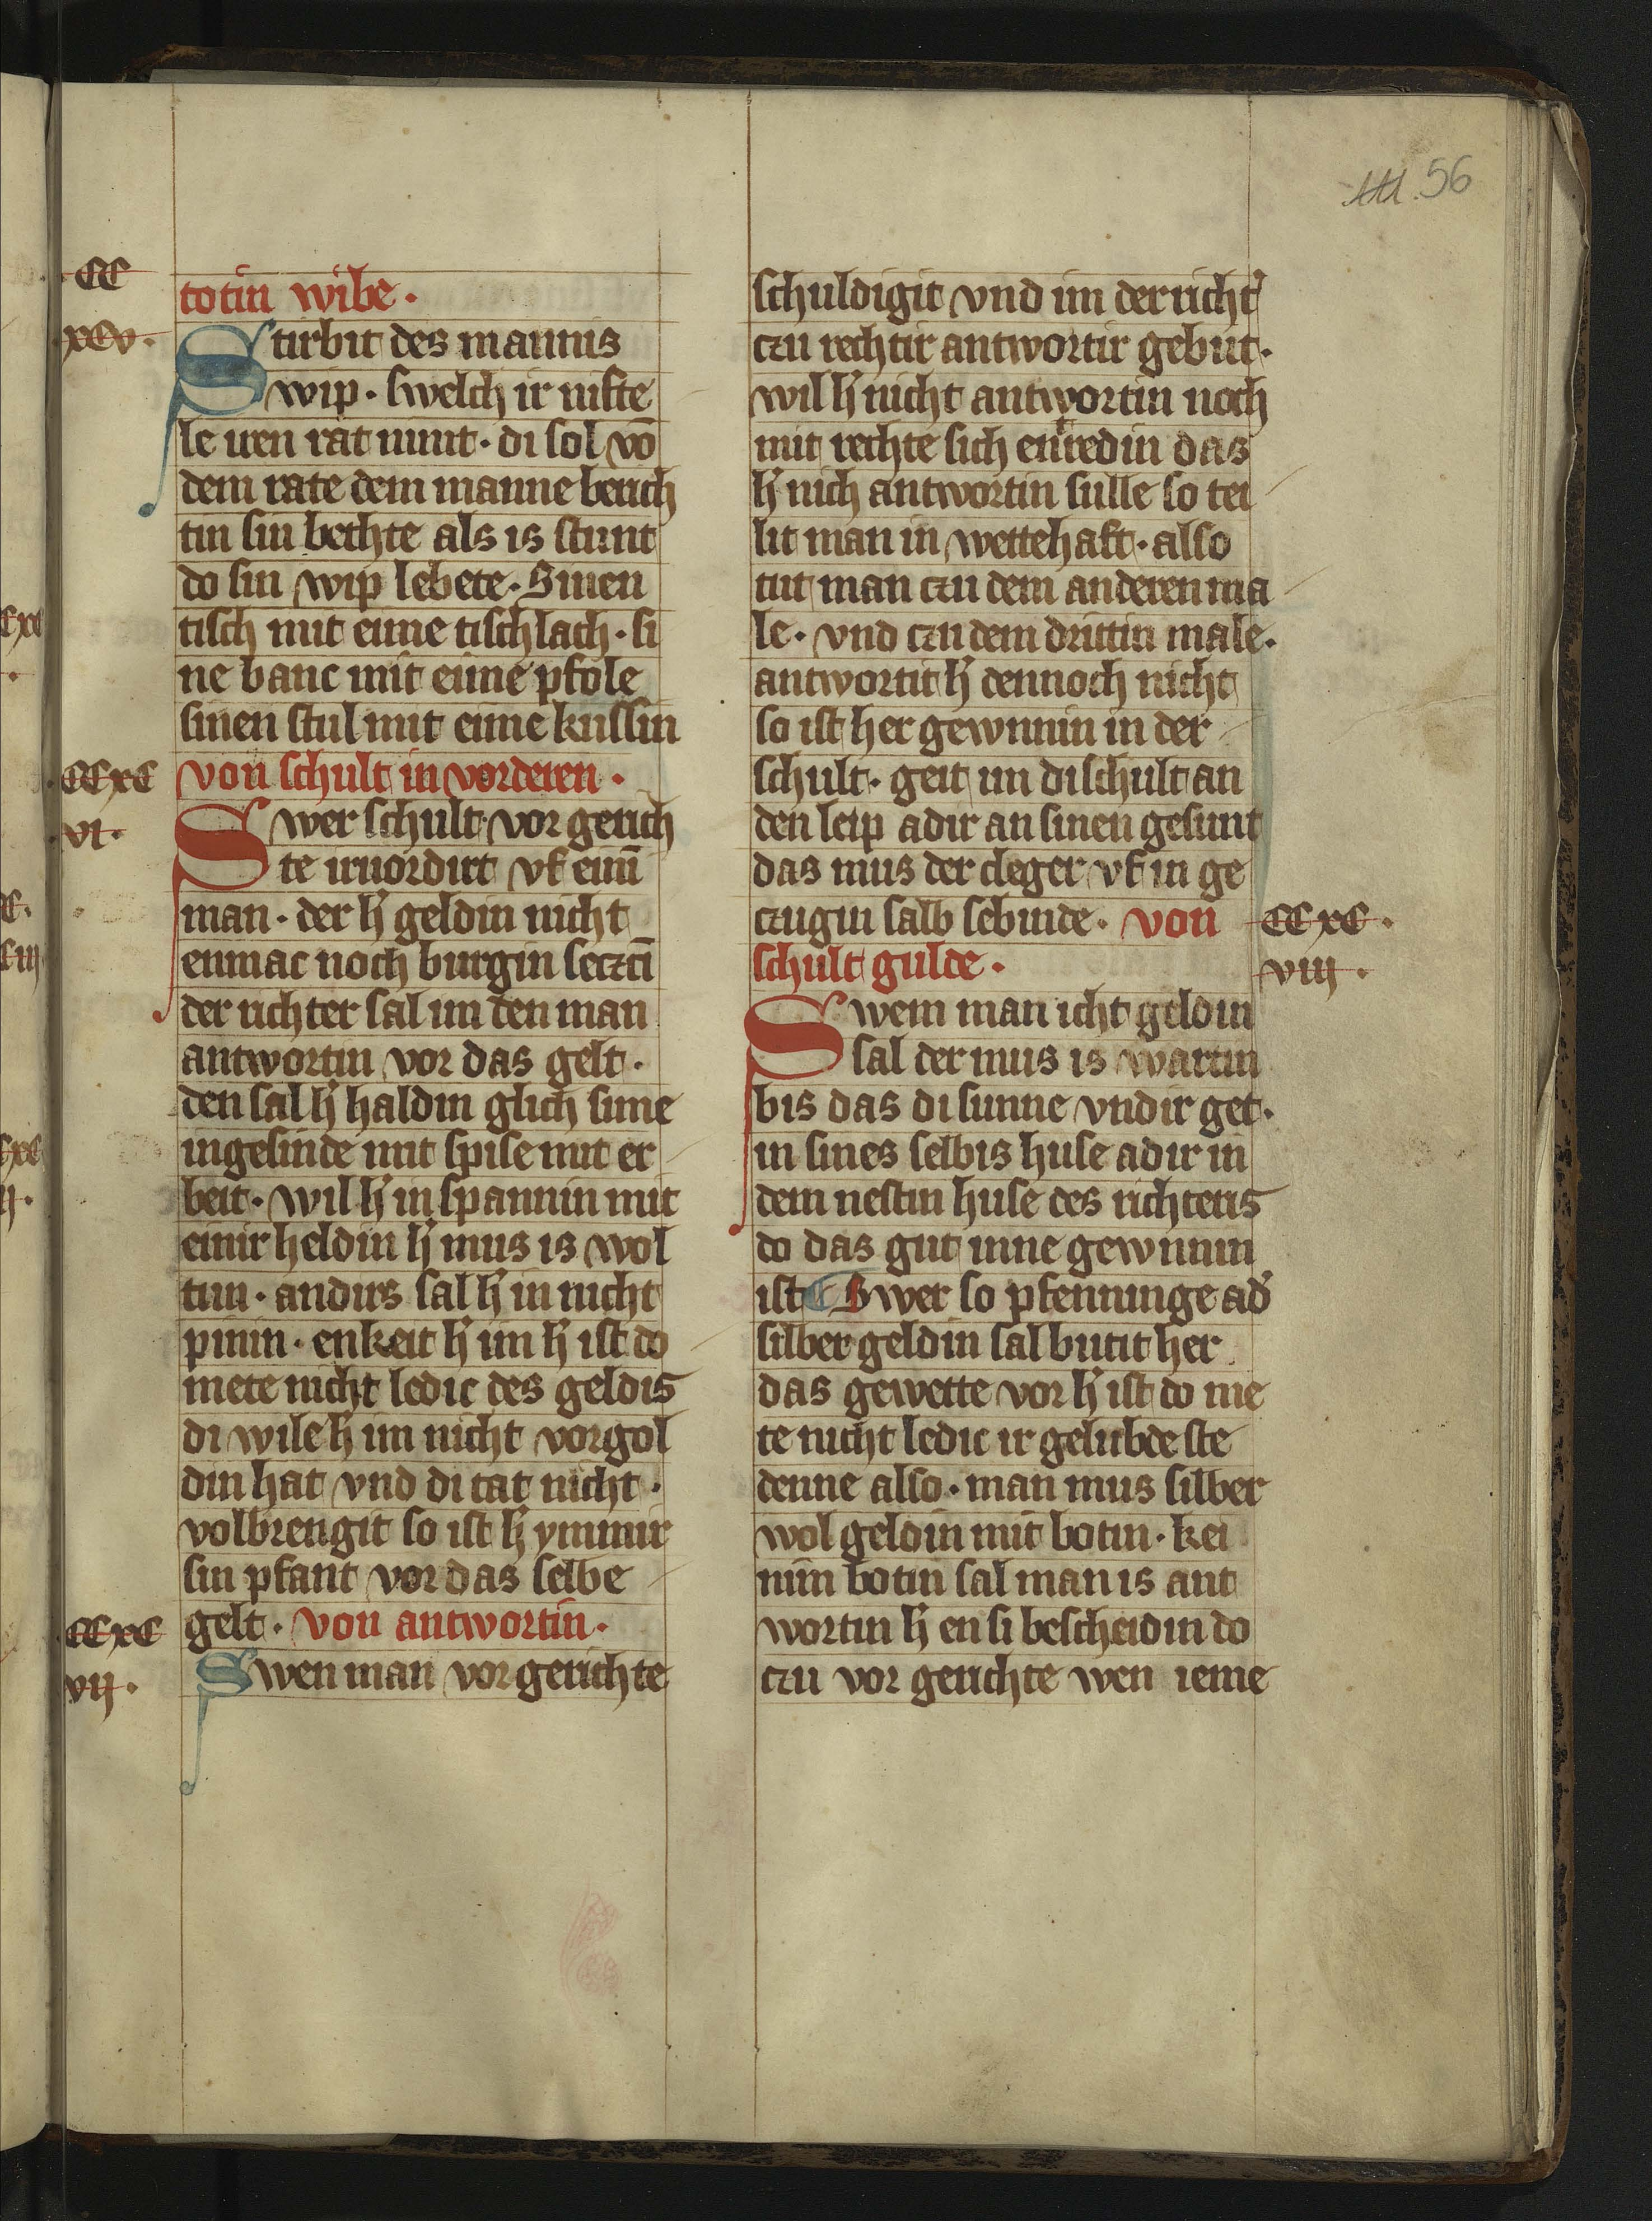 56
CC
xcv.
totin wibe.
Stirbit des mannis
wip. swelch ir nifte
le iren rat nimt. di sol vō
dem rate dem manne berich
tin sin bethte als is stunt
do sin wip lebete. Sinen
tisch mit eime tischlach. si
ne banc mit eime pfole
sinen stul mit eime kussin
CCxc
vi.
von schult in vorderen.
Swer schult vor gerich
te irvordirt vf einī
man. der h' geldin nicht
enmac noch burgin seczcī
der richter sal im den man
antwortin vor das gelt.
den sal h' haldin glich sime
ingesinde mit spise mit er
beit. wil h' in spannin mit
einir heldin h' mus is wol
tun. andirs sal h' in nicht
pinin. enkeit h' im h' ist do
mete nicht ledic des geldis
di wile h' im nicht vorgol
din hat vnd di tat nicht.
volbrengit so ist h' ymmir
sin pfant vor das selbe
CCxc
vij.
gelt. von antwortin.
Swen man vor gerichte
schuldigit vnd im der richt'
czu rechtir antwortir gebut.
wil h' nicht antwortin noch
mit rechte sich entredin das
h' nich antwortin sulle so tei
lit man in wettehaft. also
tut man czu dem anderen ma
le. vnd czu dem drittin male.
antwortit h' dennoch nicht
so ist her gewnnin in der
schult. geit im di schult an
den leip adir an sinen gesunt
das mus der cleger vf in ge
czugin salb sebinde. von
CCxc.
viij.
schult gulde.
Swem man icht geldin
sal der mus is wartin
bis das di sunne vndir get.
in sines selbis huse adir in
dem nestin huse des richteris
do das gut inne gewnnin
ist Swer so pfenninge ad'
silber geldin sal butit her
das gewette vor h' ist do me
te nicht ledic ir gelubde ste
denne also. man mus silber
wol geldin mit botin. kei
nim botin sal man is ant
wortin h' en si bescheidin do
czu vor gerichte wen ieme